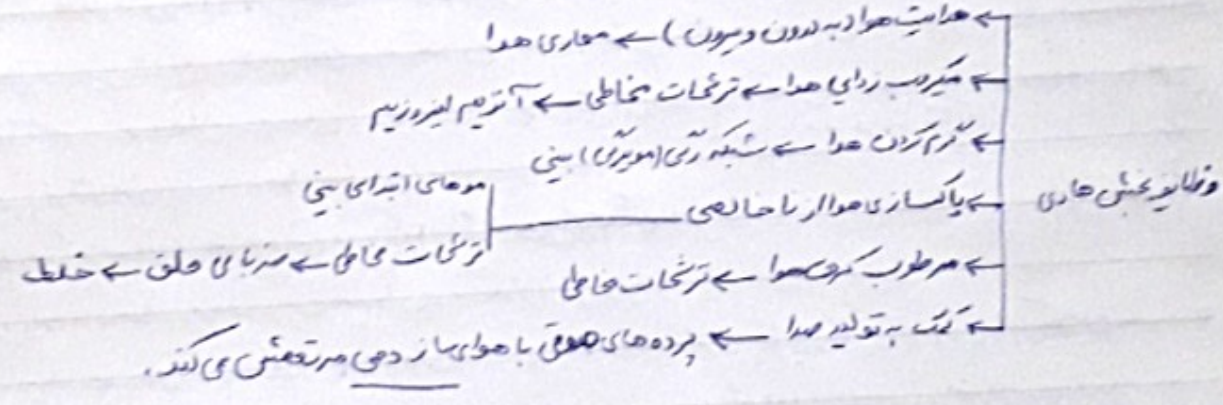 وظایف بخش هادی
← هدایت هوا (به درون و بیرون) ← مجاری هوا
← میکروب زدایی هوا ← ترشحات مخاطی ← آنزیم لیزوزیم
← گرم کردن هوا ← شبکه رگی (مویرگی) بینی
← پاکسازی هوا از ناخالصی
موهای ابتدای بینی
ترشحات مخاطی ← ضربان مژک‌ها ← حلق ← خلط
← مرطوب کردن هوا ← ترشحات مخاطی
← کمک به تولید صدا ← پرده های صوتی با هوای بازدمی مرتعش می کند.